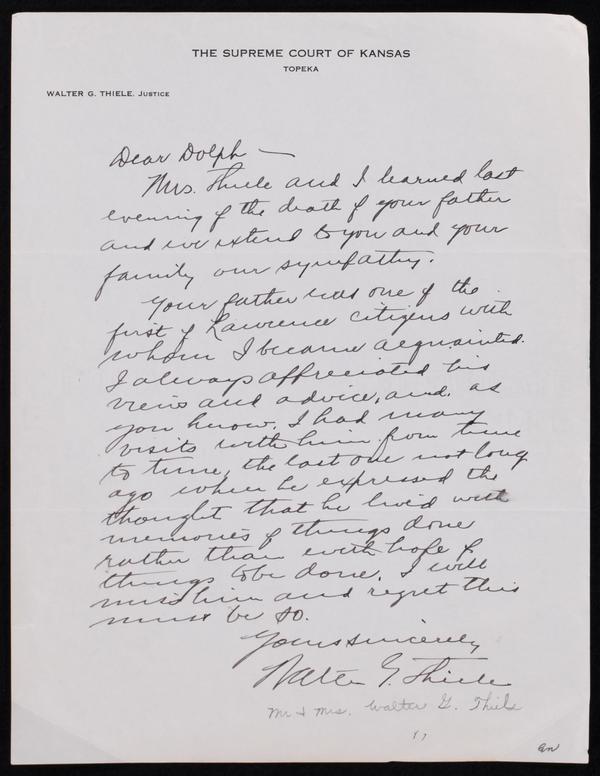 THE SUPREME COURT OF KANSAS
TOPEKA
WALTER G. THIELE, JUSTICE
Dear Dolph —
Mrs. Thiele and I learned last
evening of the death of your father
and we extend to you and your
family our sympathy.
Your father was one of the
first of Lawrence citizens with
whom I became acquainted.
I always appreciated his
views and advice, and, as
you know, I had many
visits with him from time
to time, the last one not long
ago when he expressed the
thought that he lived with
memories of things done
rather than with hope of
things to be done. I will
miss him and regret this
must be so.
Yours sincerely
Walter G. Thiele
Mr & Mrs. Walter G. Thiele